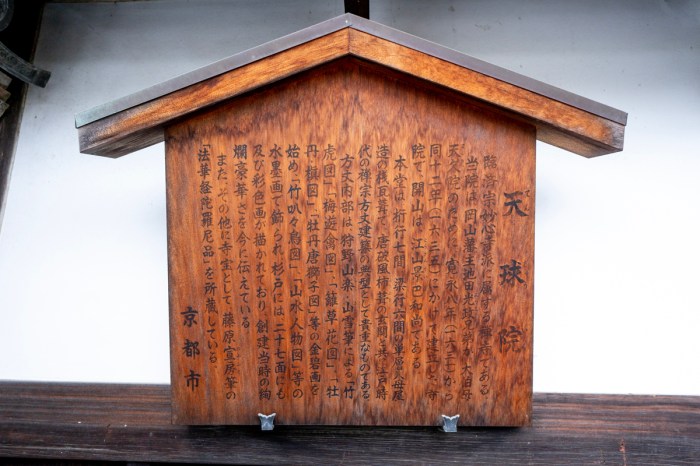 天球院
臨済宗妙心寺派に属する禅寺である。
当院は、岡山藩主池田光政 が、大伯母
天球院のために、寛永八年(一六三一)から
同十二年(一六三五)にかけて建立した寺
院で、開山は、江山景巴和尚である。
本堂は、桁行七間、梁行六間の単層入母屋
造の桟瓦葺に、唐破風 葺の玄関と共に江戸時
代の禅宗方丈建築の典型として貴重なものである。
方丈内部は、狩野山楽・山雪筆による「竹
虎図」、「梅遊禽図」、「籬草花図」、「牡
丹 図」「牡丹唐獅子図」等の金碧画を
始め、「竹叭々鳥図」、「山水人物図」等の
水墨画で飾られ、杉戸には二十七面にも
及び彩色画が描かれており、創建当時の絢
爛豪華さを今に伝えている。
また、その他に寺宝として、藤原宣房筆の
「法華経陀羅尼品」を所蔵している。
京都市